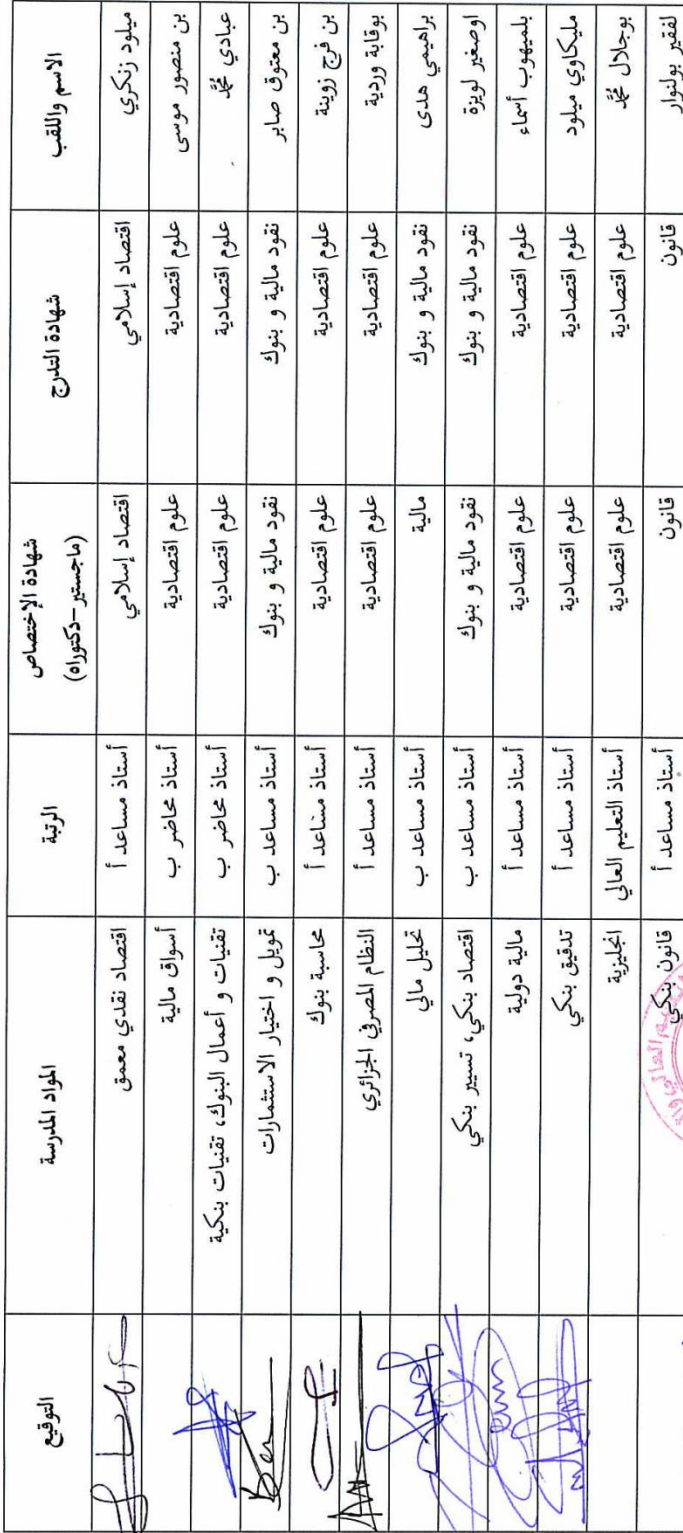 الاسم واللقب شهادة التدرج شهادة الإختصاص (ماجستير –دكتوراه) الرتبة المواد المدرسة التوقيع
ميلود زنكري اقتصاد إسلامي اقتصاد إسلامي أستاذ مساعد أ اقتصاد نقدي معمق
بن منصور موسى علوم اقتصادية علوم اقتصادية أستاذ محاضر ب أسواق مالية
عبادي محمد علوم اقتصادية علوم اقتصادية أستاذ محاضر ب تقنيات و أعمال البنوك، تقنيات بنكية
بن معتوق صابر نقود مالية و بنوك نقود مالية و بنوك أستاذ مساعد ب تمويل و اختيار الاستثمارات
بن فرج زوينة علوم اقتصادية علوم اقتصادية أستاذ مساعد أ محاسبة بنوك
بوقابة وردية علوم اقتصادية علوم اقتصادية أستاذ مساعد أ النظام المصرفي الجزائري
براهيمي هدى نقود مالية و بنوك مالية أستاذ مساعد ب تحليل مالي
اوصغير لويزة نقود مالية و بنوك نقود مالية و بنوك أستاذ مساعد ب اقتصاد بنكي، تسيير بنكي
بلميهوب أسماء علوم اقتصادية علوم اقتصادية أستاذ مساعد أ مالية دولية
مليكاوي ميلود علوم اقتصادية علوم اقتصادية أستاذ مساعد أ تدقيق بنكي
بوجلال محمد علوم اقتصادية علوم اقتصادية أستاذ التعليم العالي انجليزية
لفقير بولنوار قانون قانون أستاذ مساعد أ قانون بنكي